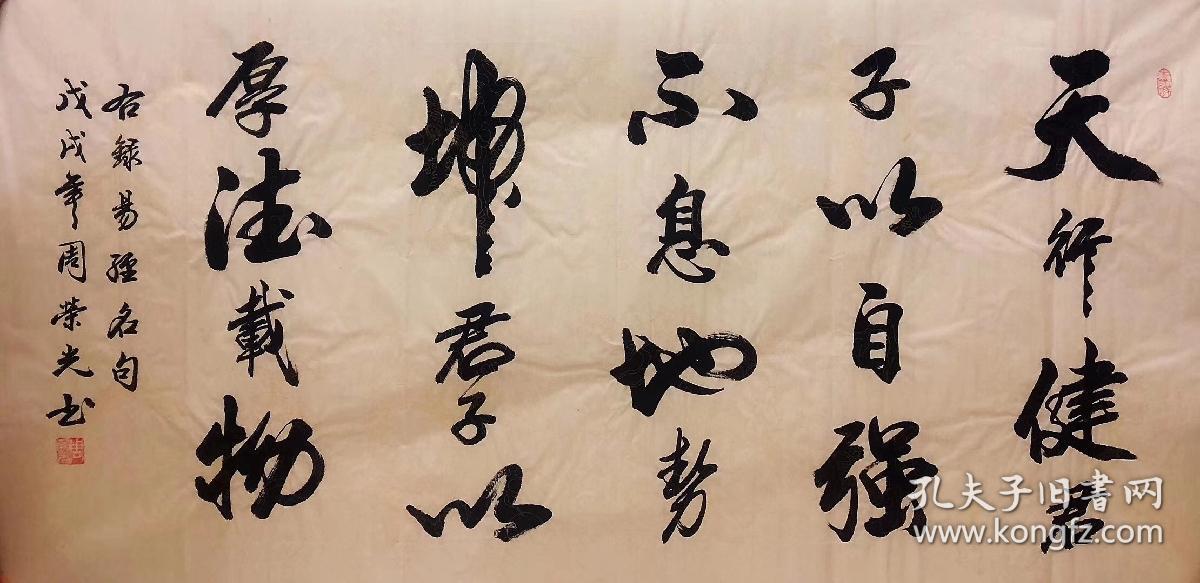 天行健君
子以自强
不息地势
坤君子以
厚德載物
右録易經名句
戊戌年周榮光书
孔夫子旧書网
www.kongfz.com